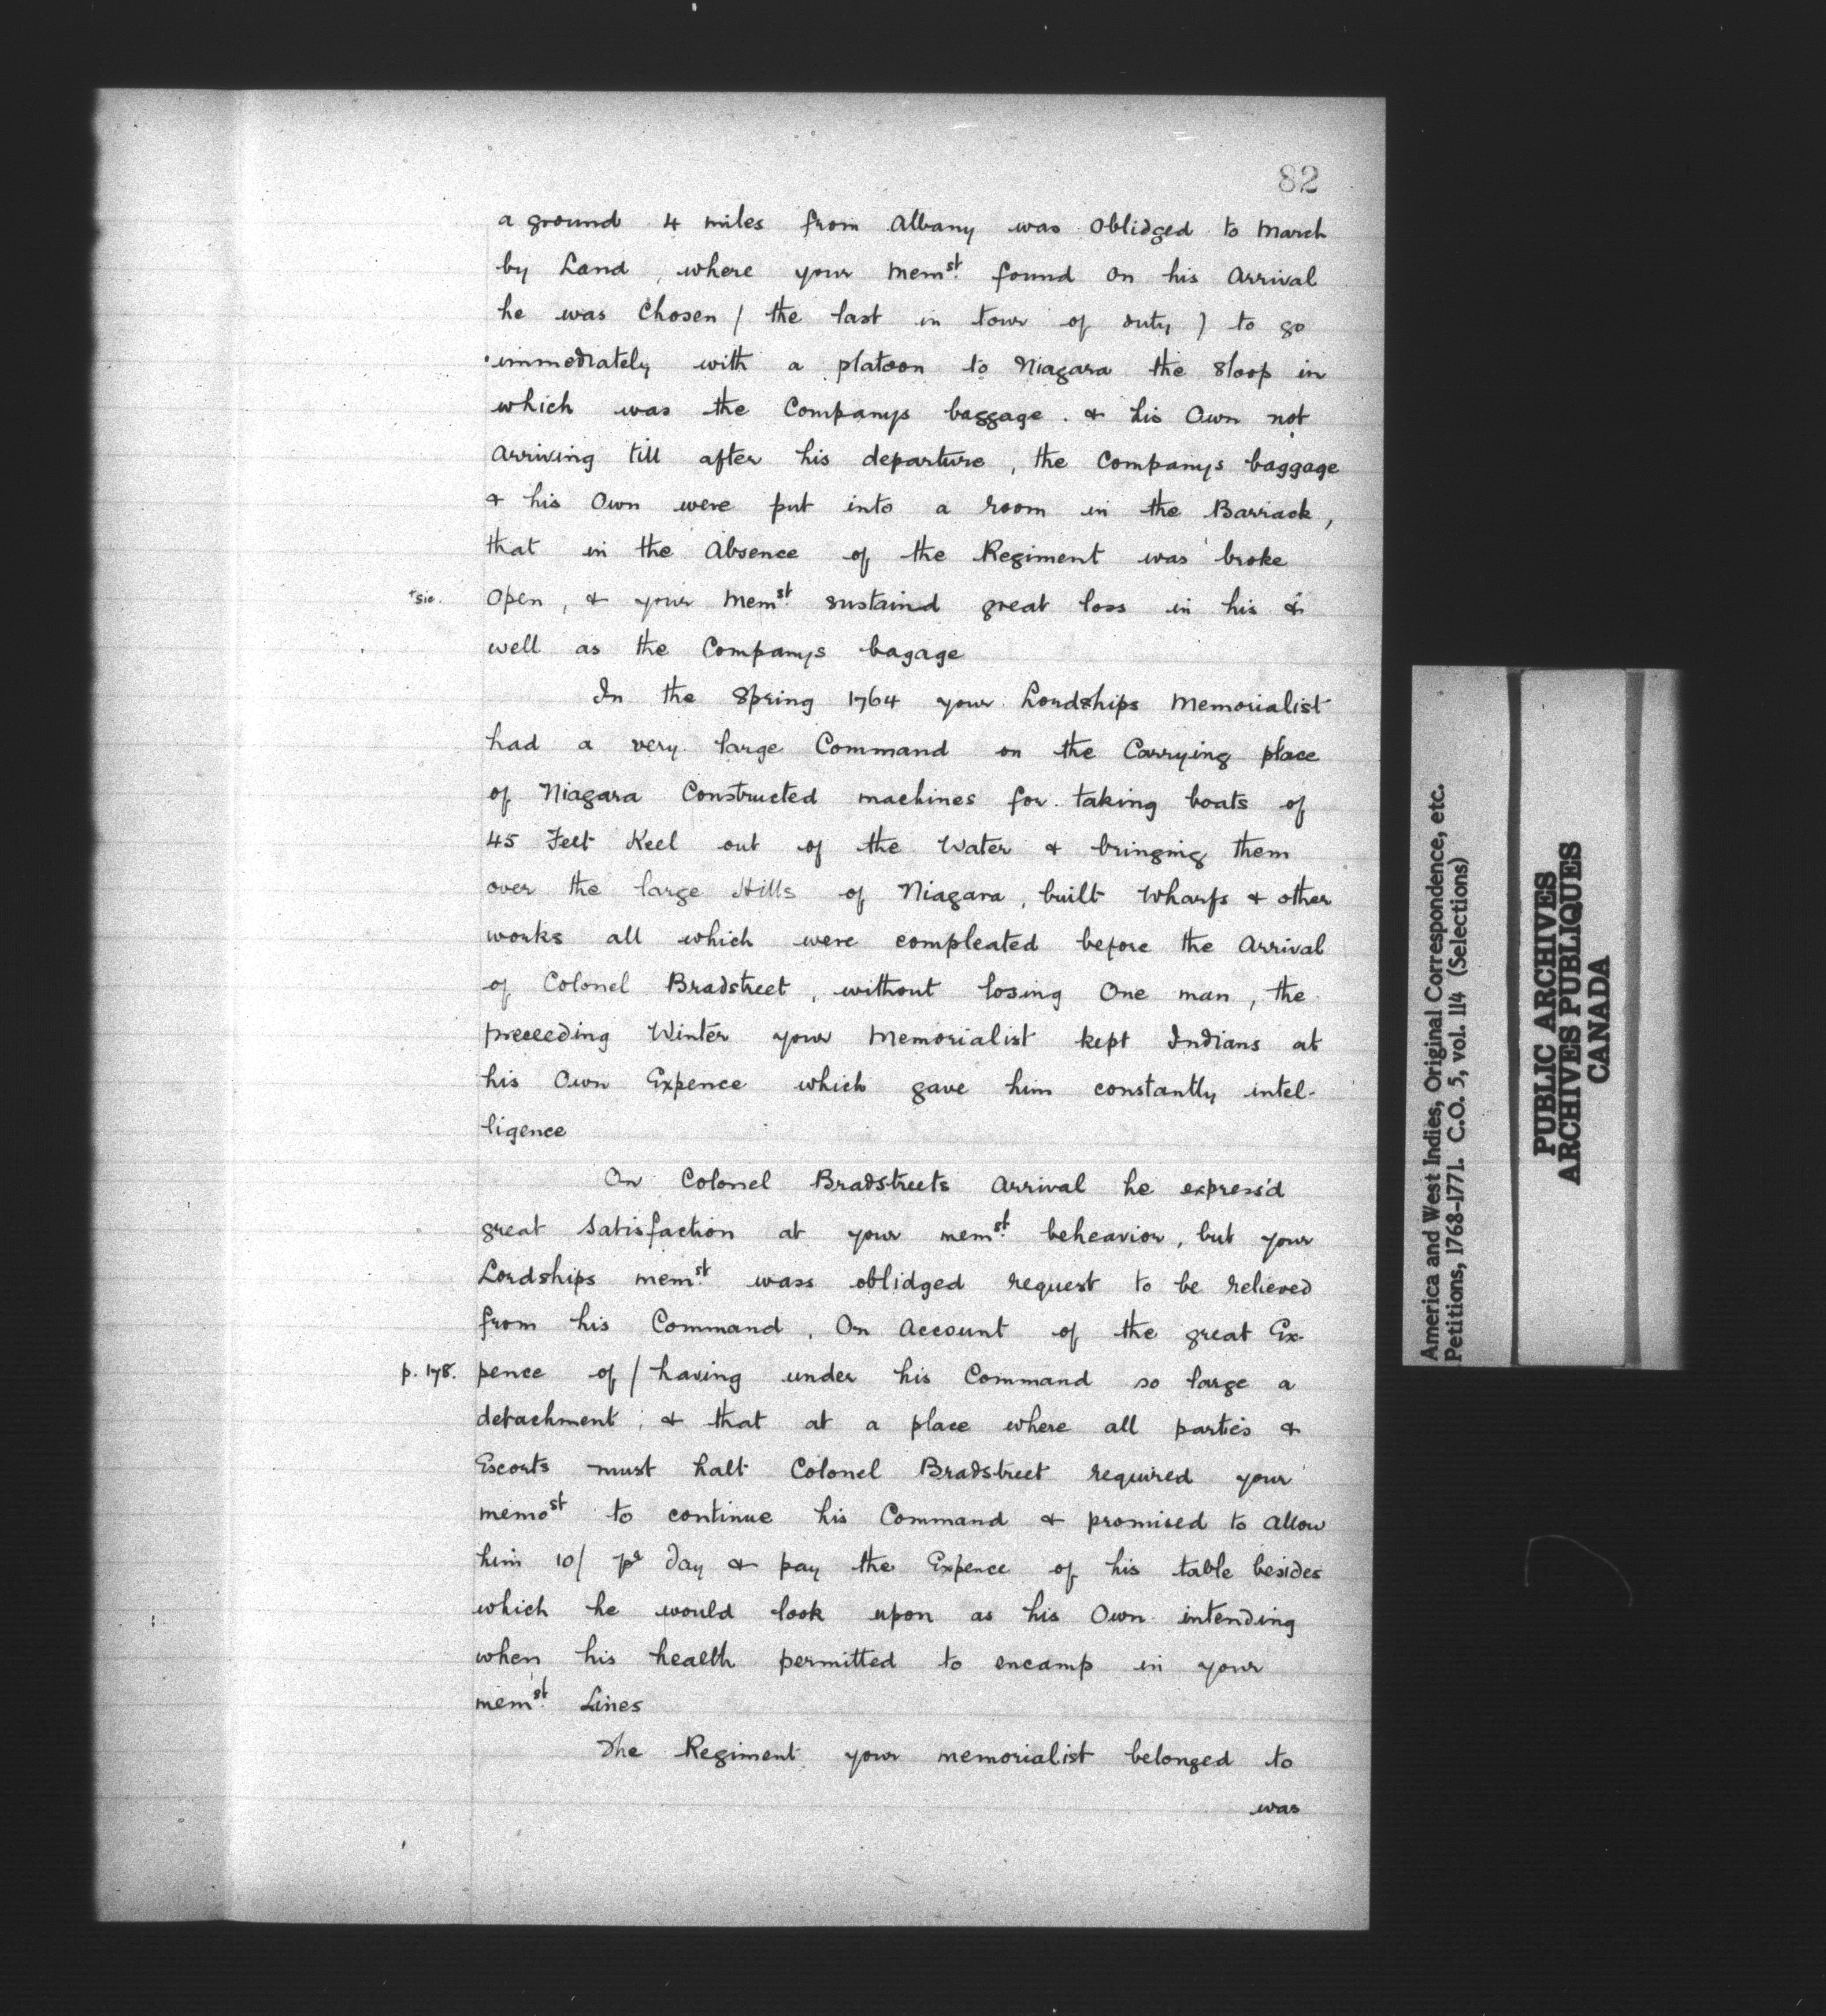 82
a ground 4 miles from Albany was Oblidged to March
by Land, where your Mem.st found on his Arrival
he was Chosen / the last in tour of duty ) to go
immediately with a platoon to Niagara the Sloop in
which was the Companys baggage & his Own not
Arriving till after his departure, the Companys baggage
& his Own were put into a room in the Barrack,
that in the Absence of the Regiment was broke
+sic. Open, & your Mem.st sustaind great loss in his &+
well as the Companys bagage
In the Spring 1764 your Lordships Memorialist
had a very large Command on the Carrying place
of Niagara Constructed machines for taking boats of
45 Feet Keel out of the Water & bringing them
over the large Hills of Niagara, built Wharfs & other
works all which were compleated before the Arrival
of Colonel Bradstreet, without losing One man, the
preceeding Winter your Memorialist kept Indians at
his Own Expence which gave him constantly intel-
ligence
On Colonel Bradstreets Arrival he express'd
great Satisfaction at your mem.st beheavior, but your
Lordships mem.st wass oblidged request to be relieved
from his Command, On Account of the great Ex-
p. 178. pence of / having under his Command so large a
detachment, & that at a place where all parties &
Escorts must halt Colonel Bradstreet required your
memost to continue his Command & promised to Allow
him 10/ pr day & pay the Expence of his table besides
which he would look upon as his Own intending
when his health permitted to encamp in your
mem.st Lines
The Regiment your memorialist belonged to
was
America and West Indies, Original Correspondence, etc.
Petitions, 1768-1771. C.O. 5, vol. 114 (Selections)
PUBLIC ARCHIVES
ARCHIVES PUBLIQUES
CANADA